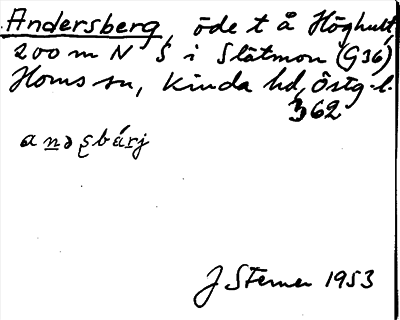 Andersberg, öde t å Höghult,
200 m N S i Slätmon (G36)
Horns sn, Kinda hd, Östg. l.
362
anəʂbárj
J Sterner 1953